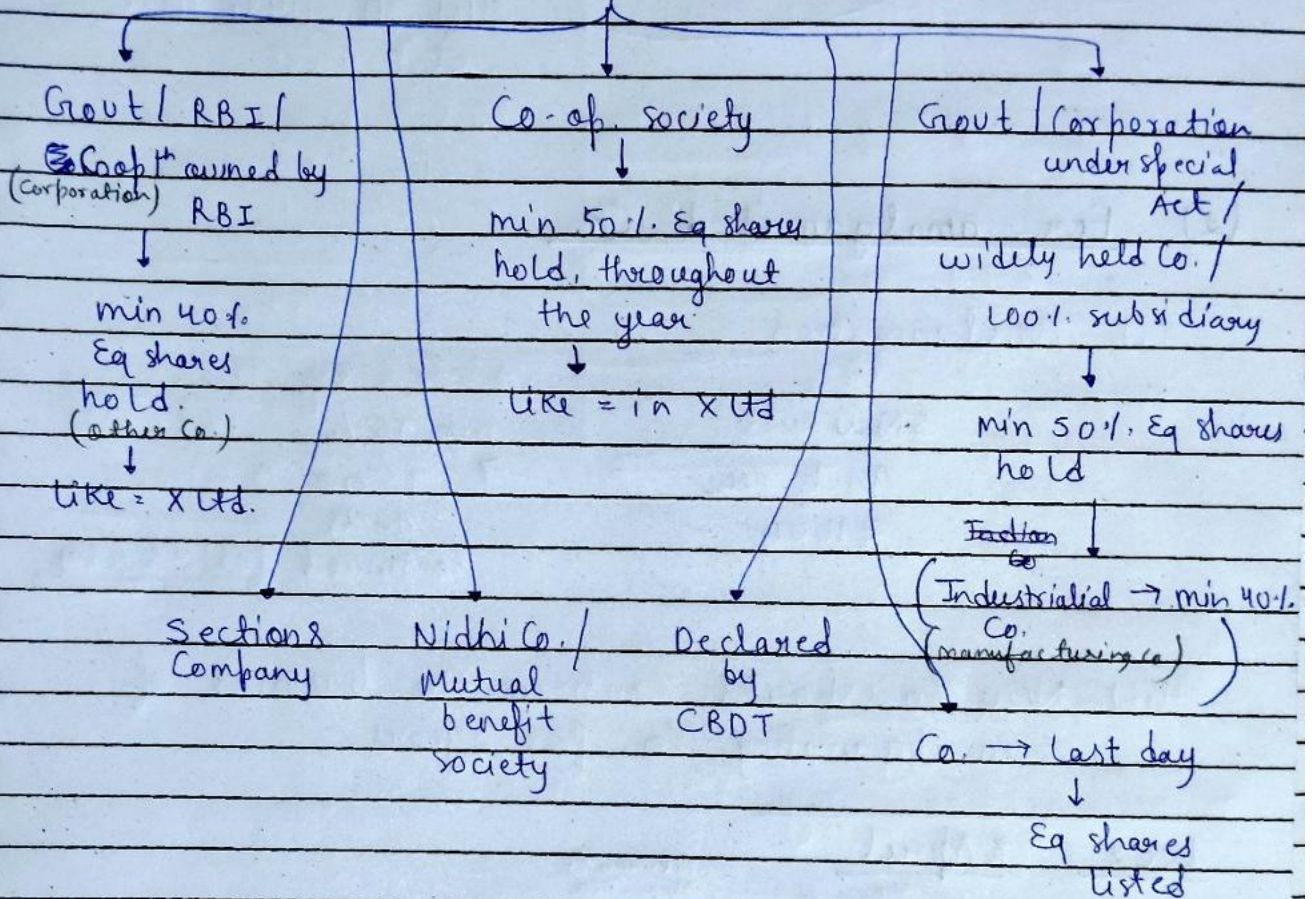 Govt / RBI /
Coopth owned by
(Corporation)
RBI
↓
min 40%
Eq shares
hold.
(other Co.)
↓
like = X Ltd.
Co-op. society
↓
min 50%. Eq shares
hold, throughout
the year
↓
like = in X Ltd
Govt / Corporation
under special
Act /
widely held Co. /
100%. subsidiary
↓
min 50%. Eq shares
hold
↓
(Industrialial → min 40%.
Co.
(manufacturing co)
)
Section 8
Company
Nidhi Co. /
Mutual
benefit
society
Declared
by
CBDT
Co. → last day
↓
Eq shares
listed